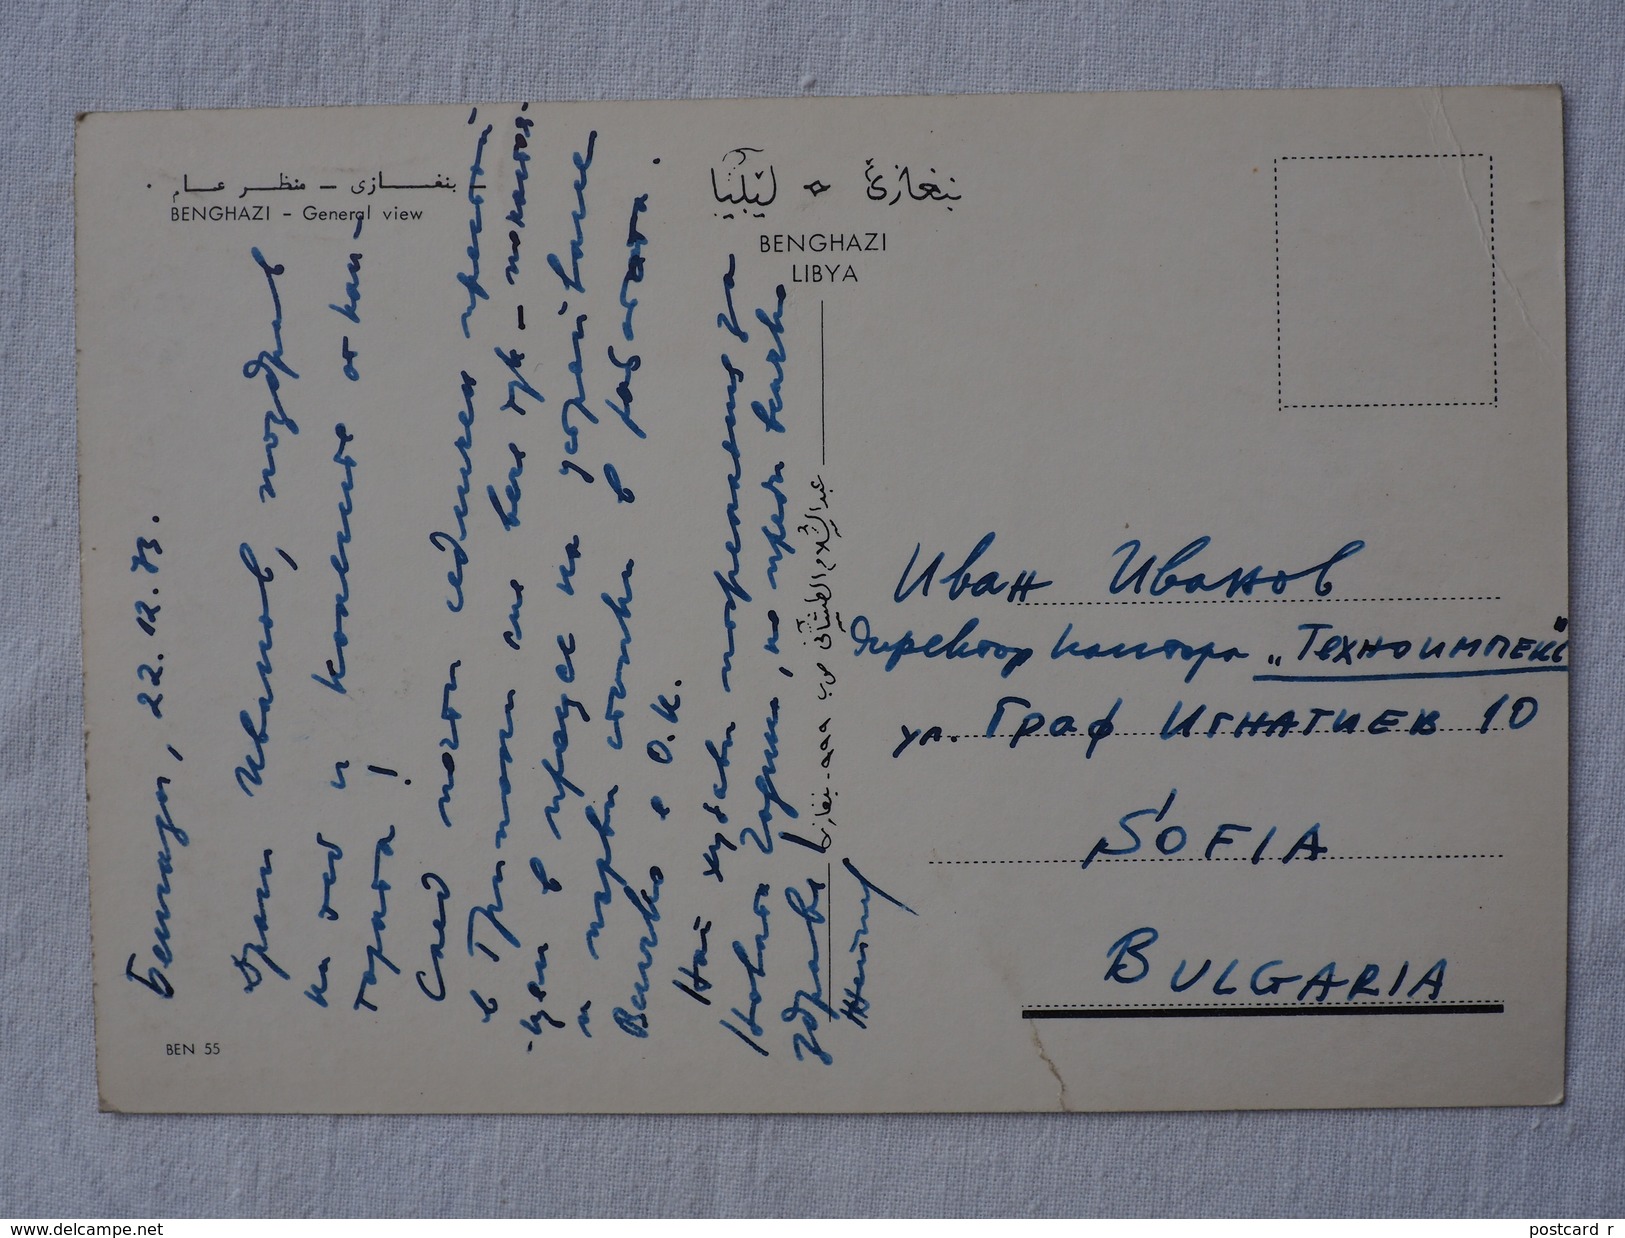 بنغازى - منظر عام
BENGHAZI - General view
بنغازي ليبيا
BENGHAZI
LIBYA
Бенгази, 22.12.73.
Драги Иванов, поздрав
на теб и колегите от кан-
тората!
След почти седмичен престой
в Триполи сме вече тук - показа-
и първи сметки в работата.
Всичко е О.К.
Най хубави пожелания за
Новата Година, но преди всичко
здраве!
عبد السلام ص.ب بنغازى
Иван Иванов
Директор кантора „Техноимпекс"
ул. Граф Игнатиев 10
SOFIA
BULGARIA
BEN 55
www.delcampe.net
postcard_r